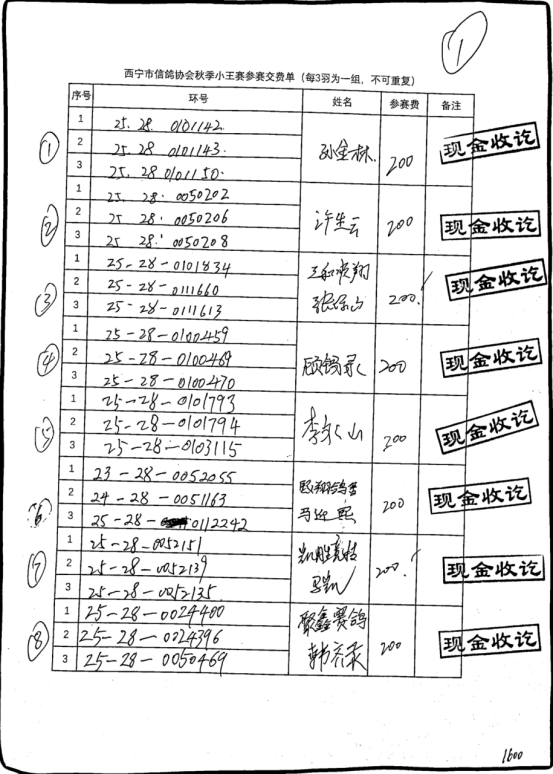 1
西宁市信鸽协会秋季小王赛参赛交费单（每3羽为一组，不可重复）
序号 环号 姓名 参赛费 备注
① 1 25.28 0101142
2 25.28 0101143 孙金林 200 现金收讫
3 25.28 0101150
② 1 25.28 0050202
2 25 28 0050206 许生云 200 现金收讫
3 25 28 0050208
③ 1 25-28-0101834
2 25-28-0111660 200 现金收讫
3 25-28-0111613
④ 1 25-28-0100459
2 25-28-0100469 200 现金收讫
3 25-28-0100470
⑤ 1 25-28-0101793
2 25-28-0101794 山 200 现金收讫
3 25-28-0103115
⑥ 1 23-28-0052055
2 24-28-0051163 200 现金收讫
3 25-28-0112242 马迎熙
⑦ 1 25-28-0052151
2 25-28-0052139 200 现金收讫
3 25-28-0052135 马凯
⑧ 1 25-28-0024400 聚鑫赛鸽
2 25-28-0024396 200 现金收讫
3 25-28-0050469
1600